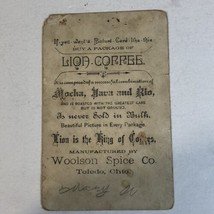 If you
Picture Card like this
BUY A PACKAGE OF
LION COFFEE.
It is composed of a successful combination of
Mocha, Java and Rio,
AND IS ROASTED WITH THE GREATEST CARE
BUT IS NOT GROUND.
Is never Sold in Bulk.
Beautiful Picture in Every Package.
Lion is the King of Coffees.
MANUFACTURED BY
Woolson Spice Co.
Toledo, Ohio
Mary